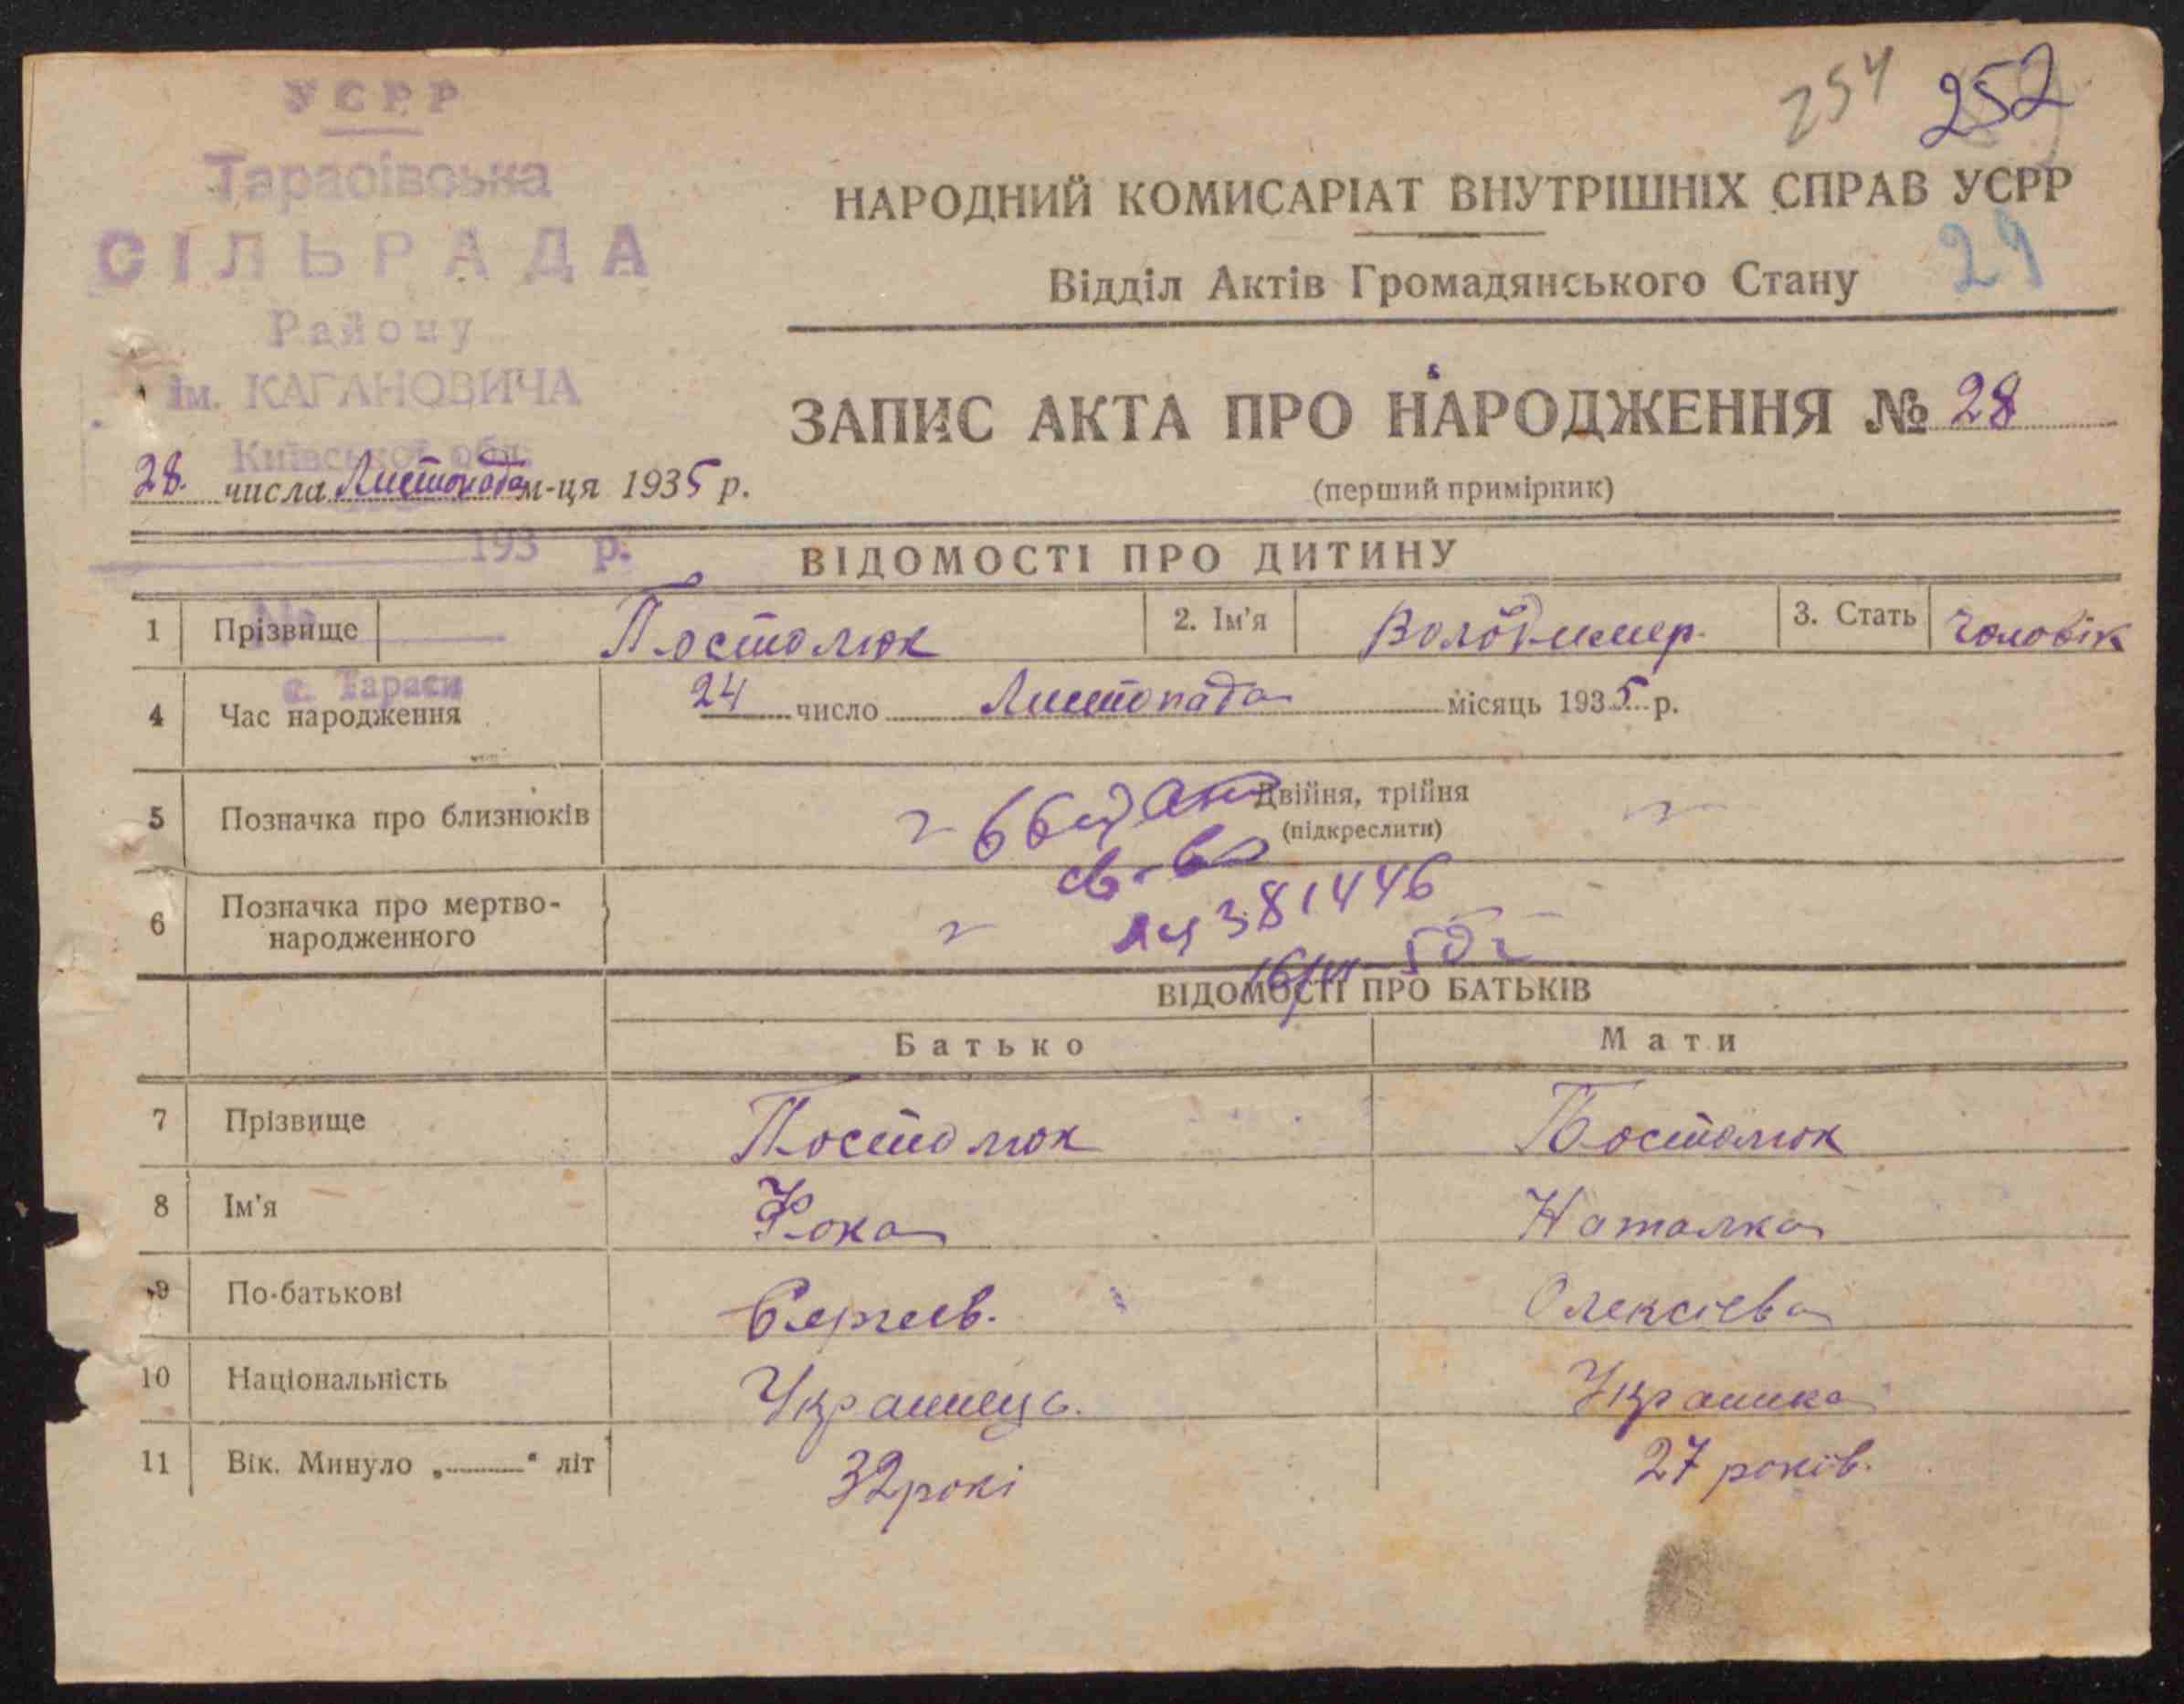 УСРР
Тарасівська
СІЛЬРАДА
Району
ім. КАГАНОВИЧА
Київської обл.
193 р.
№
с. Тараси
254 252
НАРОДНИЙ КОМИСАРІАТ ВНУТРІШНІХ СПРАВ УСРР
Відділ Актів Громадянського Стану 29
ЗАПИС АКТА ПРО НАРОДЖЕННЯ № 28
28. числа Листопада м-ця 1935 р.
(перший примірник)
ВІДОМОСТІ ПРО ДИТИНУ
1 Прізвище Постолюк 2. Ім'я Володимер. 3. Стать Чоловік
4 Час народження 24 число Листопада місяць 1935 р.
5 Позначка про близнюків Двійня, трійня
(підкреслити)
св-во
6 Позначка про мертво-
народженного
381446
ВІДОМОСТІ ПРО БАТЬКІВ
Батько Мати
7 Прізвище Постолюк Постолюк
8 Ім'я Фока Наталка
9 По-батькові Сергеев. Олексієва
10 Національність Українець. Українка
11 Вік. Минуло „ “ літ 32 рокі 27 років.